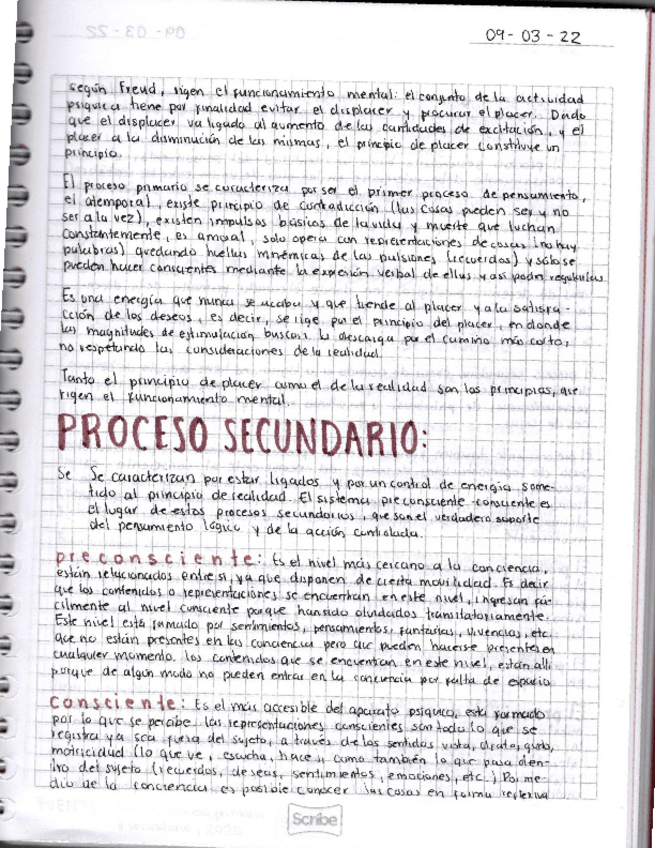 09-03-22
según Freud, rigen el funcionamiento mental: el conjunto de la actividad
psíquica tiene por finalidad evitar el displacer y procurar el placer. Dado
que el displacer va ligado al aumento de las cantidades de excitación, y el
placer a la disminución de las mismas, el principio de placer constituye un
principio.
El proceso primario se caracteriza por ser el primer proceso de pensamiento,
el atemporal, existe principio de contradicción (las cosas pueden ser y no
ser a la vez), existen impulsos básicos de la vida y muerte que luchan
constantemente, es amoral, solo opera con representaciones de cosas (no hay
palabras) quedando huellas mnémicas de las pulsiones (recuerdos) y sólo se
pueden hacer conscientes mediante la expresión verbal de ellas y así poder regularlas.
Es una energía que nunca se acaba y que tiende al placer y a la satisfa-
cción de los deseos, es decir, se rige por el principio del placer, en donde
las magnitudes de estimulación buscan la descarga por el camino más corto,
no respetando las consideraciones de la realidad.
Tanto el principio de placer como el de la realidad son los principios, que
rigen el funcionamiento mental.
PROCESO SECUNDARIO:
Se Se caracterizan por estar ligados y por un control de energía some-
tido al principio de realidad. El sistema preconsciente-consciente es
el lugar de estos procesos secundarios, que son el verdadero soporte
del pensamiento lógico y de la acción controlada.
preconsciente: Es el nivel más cercano a la conciencia,
están relacionados entre sí, ya que disponen de cierta movilidad. Es decir
que los contenidos o representaciones se encuentran en este nivel, ingresan fá-
cilmente al nivel consciente porque han sido olvidados transitoriamente.
Este nivel está formado por sentimientos, pensamientos, fantasías, vivencias, etc.
que no están presentes en las conciencia pero que pueden hacerse presentes en
cualquier momento. los contenidos que se encuentran en este nivel, están allí
porque de algún modo no pueden entrar en la conciencia por falta de espacio
Consciente: Es el más accesible del aparato psíquico, está formado
por lo que se percibe. las representaciones conscientes son todo lo que se
registra ya sea fuera del sujeto, a través de los sentidos vista, olfato, gusto,
motricidad (lo que ve, escucha, hace), como también lo que pasa den-
tro del sujeto (recuerdos, deseos, sentimientos, emociones, etc.) Por me-
dio de la conciencia, es posible conocer las cosas en forma reflexiva
Scribe